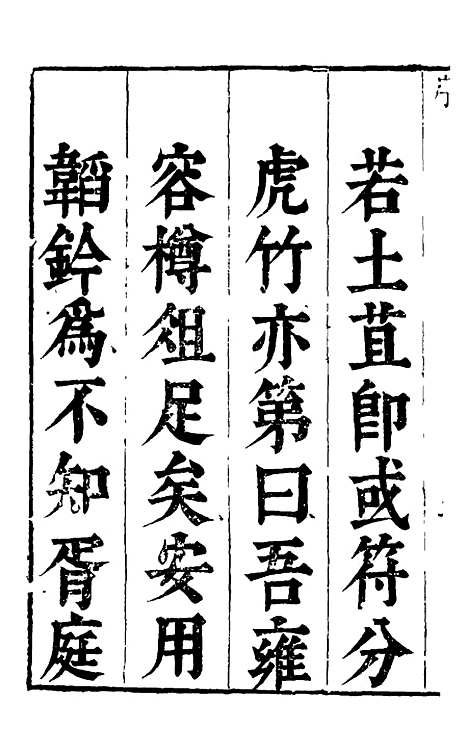 若土苴卽或符分
虎竹亦第曰吾雍
容樽俎足矣安用
韜鈐爲不知胥庭